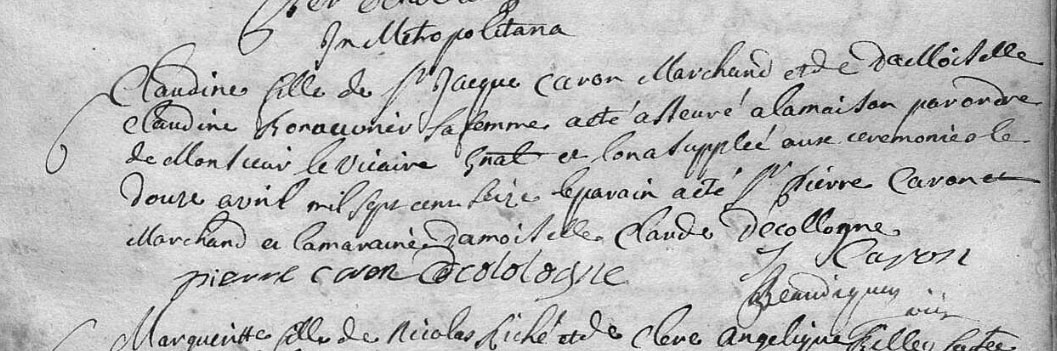 In Metropolitana
Claudine fille de Sr Jacque Caron Marchand et de damoiselle
Claudine sa femme a eté asseuré a la maison par ordre
de Monsieur le Vicaire gnal et lon a supplée aux ceremonies le
douze avril mil sept cent seize le parain a eté Sr Pierre Caron
Marchand et la maraine damoiselle Claude Decollogne
pierre caron Decolologne J Caron
Beaudiguey vic
Margueritte fille de Nicolas Riché et de Clere Angelique